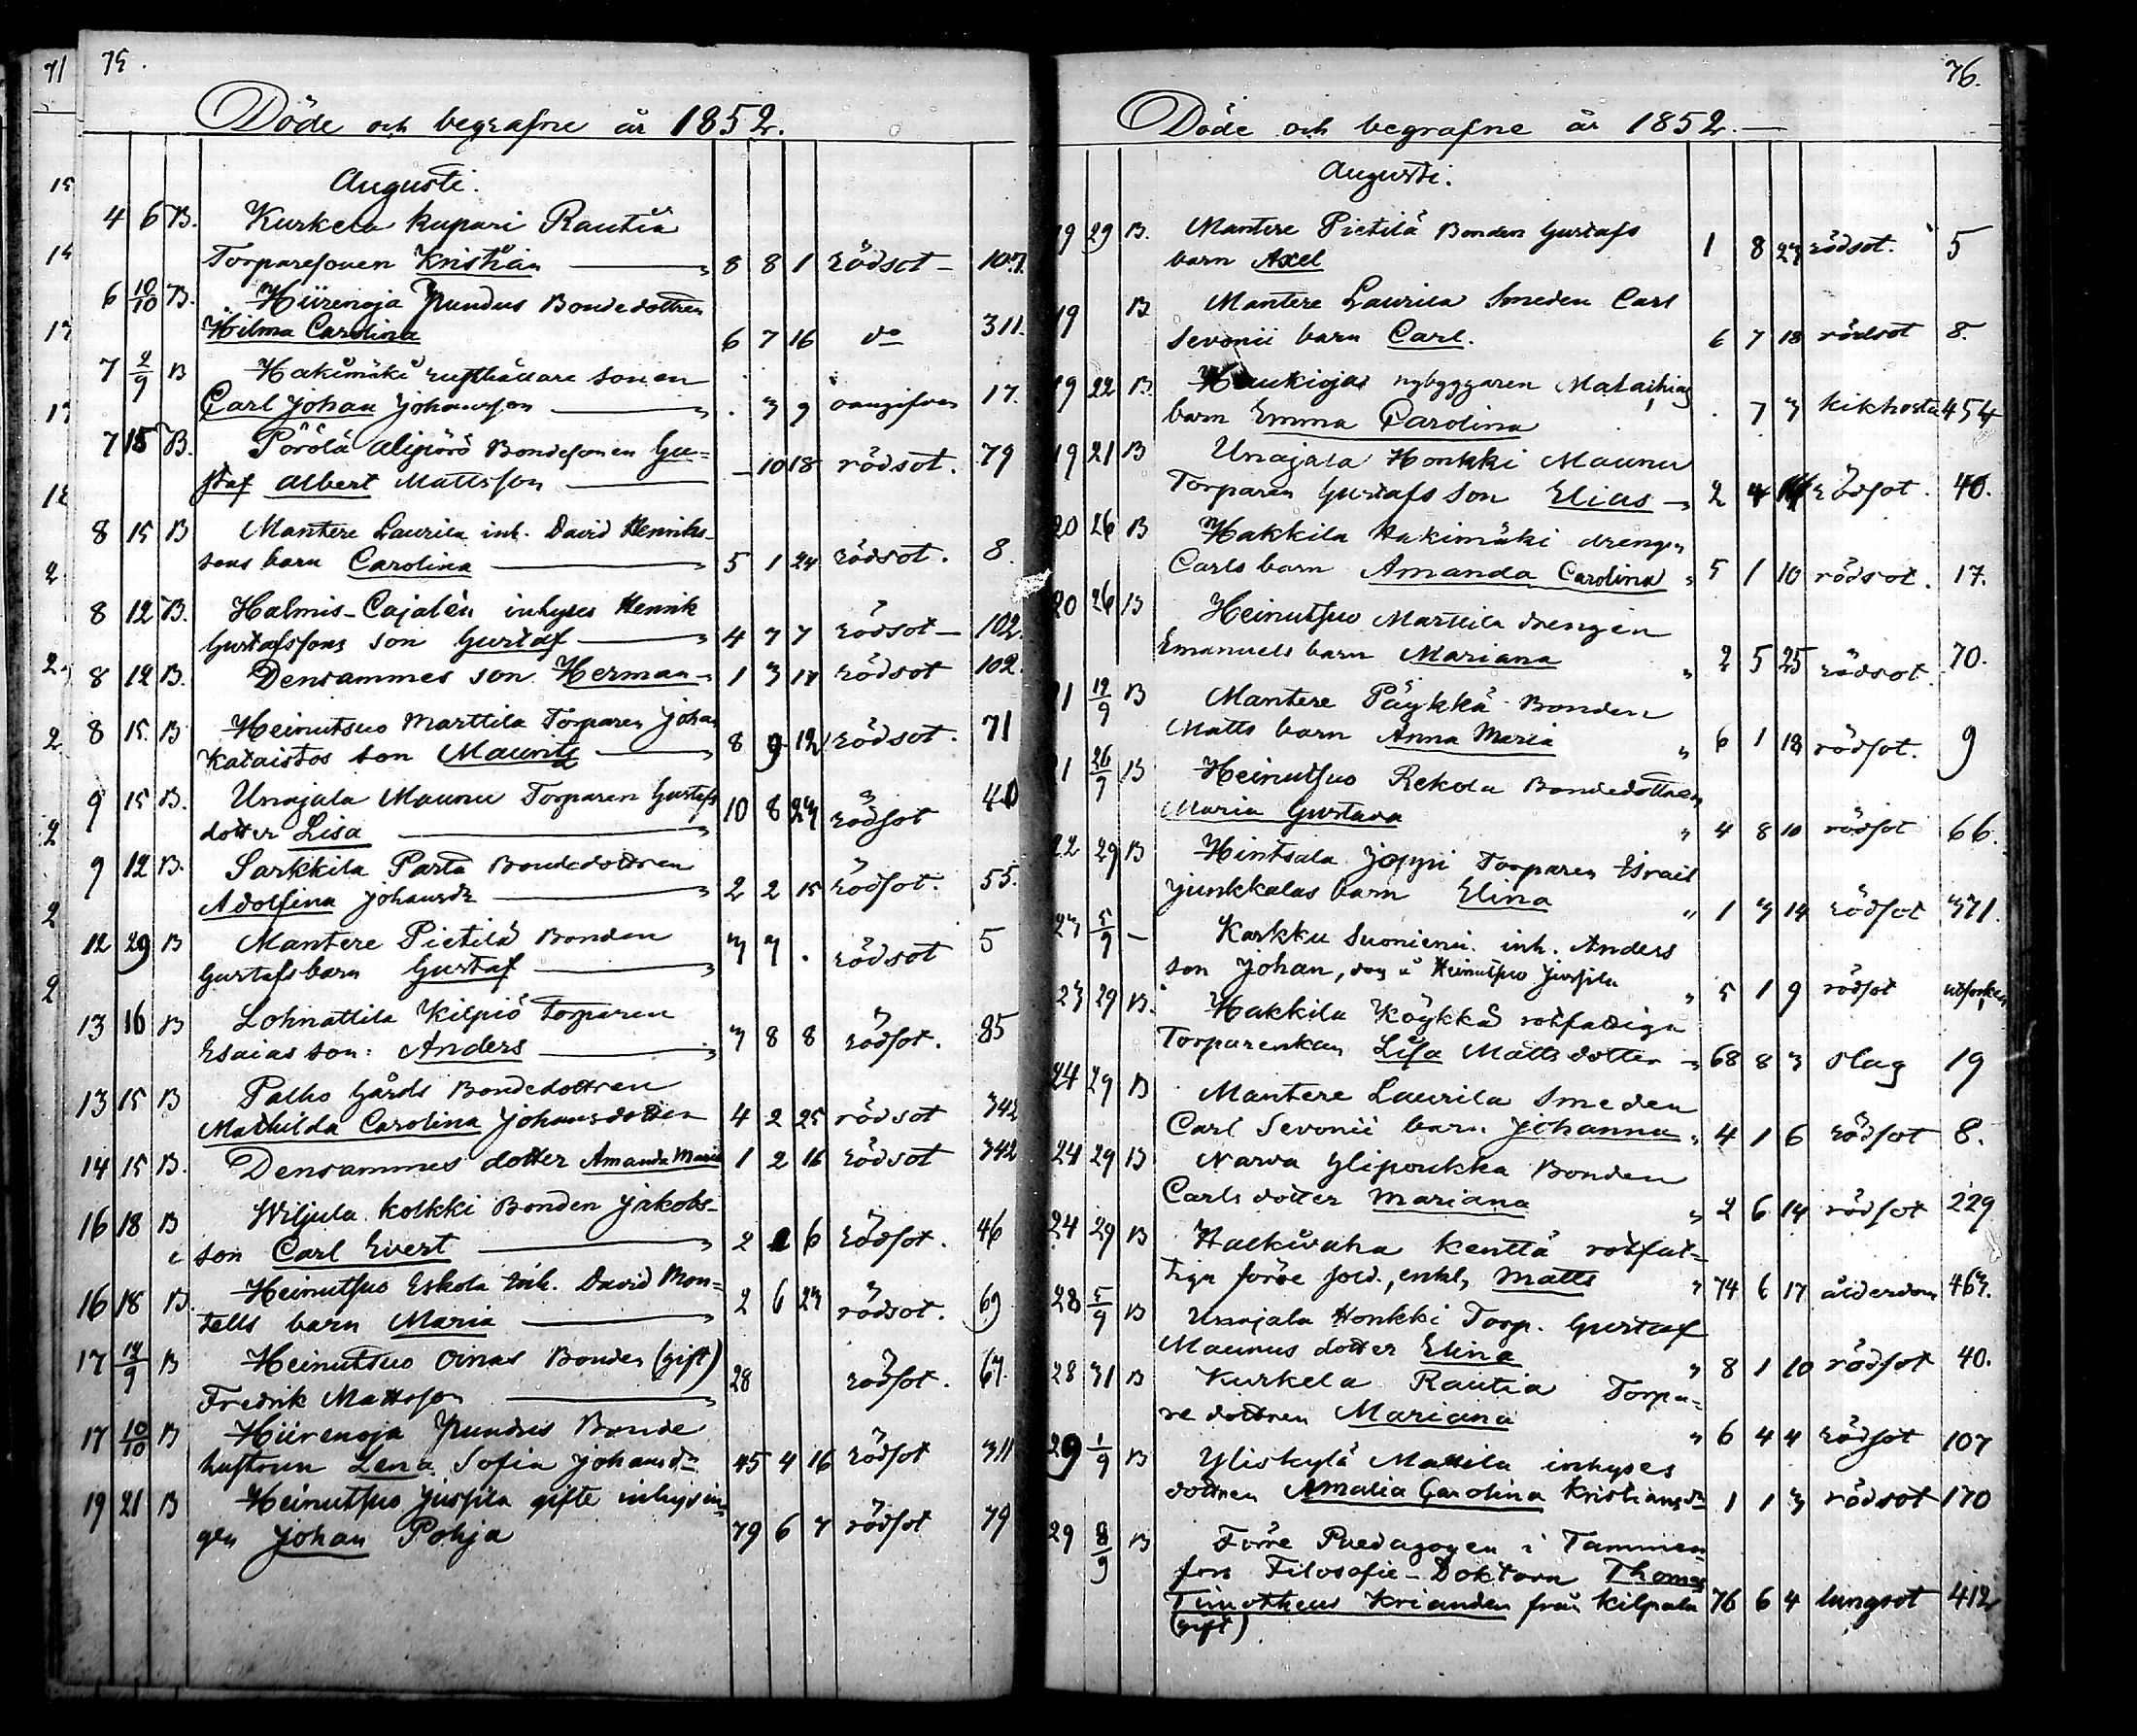 71
75.
Döde och begrafne år 1852.
Augusti.
4 6 B. Kurkela Kupari Rautia
Torparesonen Kristian 8 8 1 rödsot 107.
6 10/10 B. Hiirenoja Pundus Bondedottren
Hilma Carolina 6 7 16 do 311.
7 2/9 B Hakimäki rusthållare sonen
Carl Johan Johansson . 3 9 oangifven 17.
7 15 B. Pörölä Alipörö Bondesonen Gu=
staf Albert Mattsson — 10 18 rödsot. 79
8 15 B Mantere Laurila inh. David Henriks-
sons barn Carolina 5 1 24 rödsot. 8.
8 12 B. Halmis-Cajalén inhyses Henrik
Gustafssons son Gustaf 4 7 7 rödsot 102.
8 12 B. Densammes son Herman 1 3 17 rödsot 102.
8 15. B Heinutsuo Marttila Torparen Johan
Kataistos son Mauritz 8 9 12 rödsot. 71
9 15 B. Unajala Maunu Torparen Gustafs
dotter Lisa 10 8 23 rödsot 40
9 12 B. Sarkkila Parta Bondedottren
Adolfina Johansdr 2 2 15 rödsot. 55.
12 29 B Mantere Pietilä Bonden
Gustafs barn Gustaf 3 7 . rödsot 5
13 16 B Lohnattila Kilpiö Torparen
Esaias son: Anders 3 8 8 rödsot. 85
13 15 B Palho Gårds Bondedottren
Mathilda Carolina Johansdotter 4 2 25 rödsot 342
14 15 B. Densammes dotter Amanda Maria 1 2 16 rödsot 342
16 18 B Wiljula Kolkki Bonden Jakobs-
son Carl Evert 2 2 6 rödsot. 46
16 18 B. Heinutsuo Eskola inh. David Mon=
tells barn Maria 2 6 23 rödsot. 69
17 19/9 B Heinutsuo Oinas Bonden (gift)
Fredrik Mattsson 28 rödsot. 67.
17 10/10 B Hiirenoja Pundus Bonde
hustrun Lena Sofia Johansdr 45 4 16 rödsot 311
19 21 B Heinutsuo Jussila gifte inhysin
gen Johan Pohja 79 6 7 rödsot 79
76.
Döde och begrafne år 1852.
Augusti.
19 29 B. Mantere Pietilä Bonden Gustafs
barn Axel 1 8 23 rödsot. 5
19 B Mantere Laurila Smeden Carl
Sevonii barn Carl. 6 7 18 rödsot 8.
19 22 B. Haukioja nybyggaren Mathias
barn Emma Carolina . 7 3 kikhosta 454
19 21 B Unajala Honkki Maunu
Torparen Gustafs son Elias 2 4 rödsot. 40.
20 26 B Hakkila Hakimäki drengen
Carls barn Amanda Carolina 5 1 10 rödsot. 17.
20 26 B Heinutsuo Marttila drengen
Emanuels barn Mariana 2 5 25 rödsot. 70.
21 19/9 B Mantere Päykkä Bonden
Matts barn Anna Maria 6 1 18 rödsot. 9
21 26/9 B Heinutsuo Rekola Bondedottren
Maria Gustava 4 8 10 rödsot 66.
22 29 B Hintsala Joppi Torparen Israel
Junkkalas barn Elina 1 3 14 rödsot 371.
23 5/9 — Karkku Suoniemi inh. Anders
son Johan, dog å Heinutsuo Jussila 5 1 9 rödsot
23 29 B. Hakkila Köykkä rotfattiga
Torparenkan Lisa Mattsdotter 68 8 3 slag 19
24 29 B Mantere Laurila Smeden
Carl Sevonii barn Johanna 4 1 6 rödsot 8.
24 29 B Narva Ylipoukka Bonden
Carls dotter Mariana 2 6 14 rödsot 229
24 29 B Halkivaha Kenttä rotfat=
tiga förre sold., enkl, Matts 74 6 17 ålderdom 463.
28 5/9 B Unajala Honkki Torp. Gustaf
Maunus dotter Elina 8 1 10 rödsot 40.
28 31 B Kurkela Rautia Torpa-
re dottren Mariana 6 4 4 rödsot 107
29 1/9 B Yliskylä Mattila inhyses
dottren Amalia Carolina Kristiansdr 1 1 3 rödsot 170
29 8/9 B Förre Paedagogen i Tammer
fors Filosofie-Doktorn Thomas
Timotheus Kriander från Kilpala 76 6 4 lungsot 412
(gift)